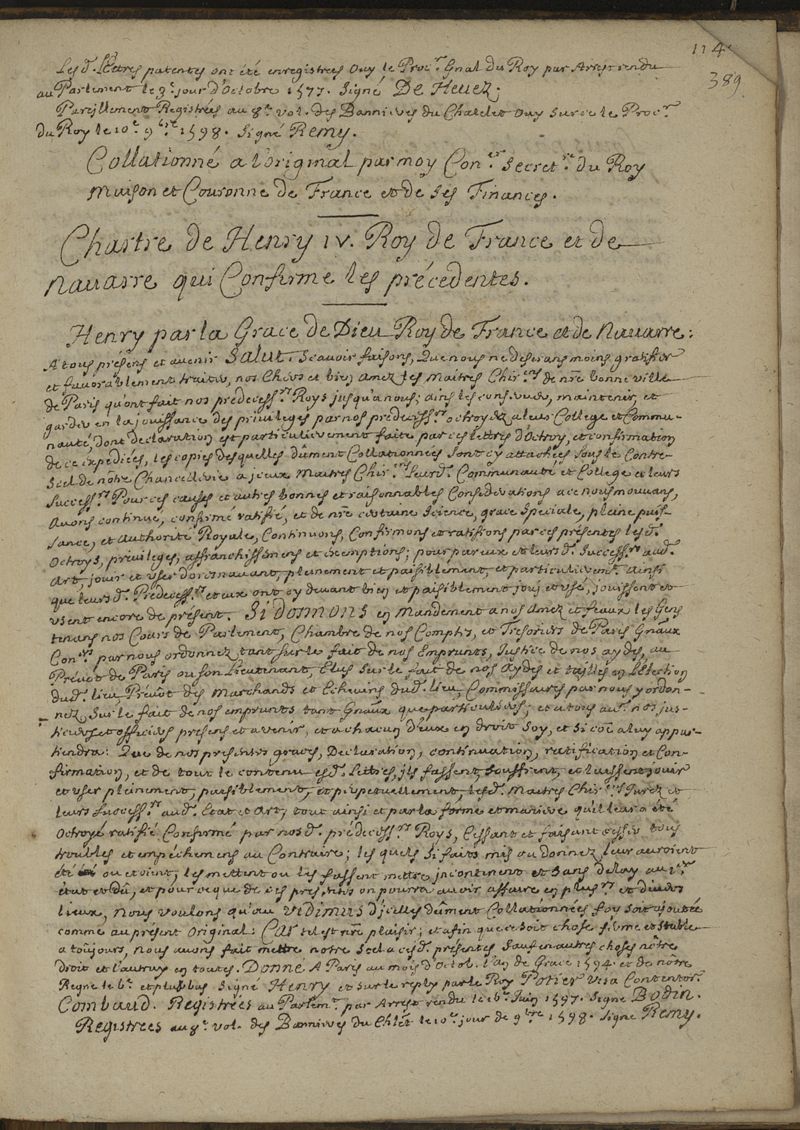 114
389
Les d. Lettres patentes ont été enregistrées Ouy le Proc.r Gnal du Roy par Arrest rendu
au Parlement le 9e jour d'Octobre 1577. Signé De Heuez.
Pareillement Registrées au 8e vol. des Bannieres du Chatelet Ouy sur ce le Proc.r
du Roy le 10e 9bre 1598. Signé Remy.
Collationné a l'original par moy Con.er Secret.re du Roy
Maison et Couronne de France et de ses Finances.
Chartre de Henry IV. Roy de France et de
Nauarre qui Confirme les précedentes.
Henry par la Grace de Dieu Roy de France et de Nauarre:
A tous présens et auenir Salut. Scauoir faisons, Que nous ne desirans moins gratifier
et fauorablement traiter, nos Chers et bien Amez les Maitres Chir.ens de nre bonne ville
de Paris qu'ont fait nos prédecess.rs Roys jusqu'a nous; ains les conseruer, maintenir, et
garder en la jouissance des priuileges par nos prédecess.rs octroyez a leur College et Commu-
nauté, dont declaration est particulierement faite par ces lettres d'Octroy, et confirmation
de ce expediées, les copies desquelles dûment Collationnées sont cy attachées sous le Contre-
Scel de nôtre Chancellerie a jceux Maitres Chir.ens leur d. Communauté et College et leurs
Success.rs Pour ces causes et autres bonnes et raisonnables Considerations a ce nous mouuans,
Auons continué, confirmé ratifié, et de nre certaine Science, grace Speciale, plaine puis-
sance, et Authorité Royale, Continuons, Confirmons et ratifions par ces présentes les d.
Octroys, priuileges, affranchissemens et exemptions; pour par eux et leurs d. Success.rs au d.
Art, jouir et vser doresnauant, plainement et paisiblement, et particulierem.t ainsi
que leurs d. Prédecess.rs et eux ont cy deuant bien et paisiblement jouy et vsé, jouissent et
vsent encore de présent. Si donnons en Mandement a nos Amez et feaux les Gens
tenans nos Cours de Parlement, Chambre de nos Comptes, et Tresoriers de Paris Gnaux
Con.ers par nous ordonnez tant sur le fait de nos Emprunts, Justice de nos aydes, au
Préuot de Paris ou son Lieutenant, Elus sur le fait de nos Aydes et tailles en l'Election
dud. lieu Préuôt des Marchands et Echeuins dud. lieu, Commissaires par nous y ordon-
nez sur le fait de nos emprunts tant Gnaux que particuliers; et a tous aut.s nos jus-
ticiers et officiers présens et auenir, et a chacun d'eux en droit Soy, et si côe a luy appar-
tiendra: Que de nos présentes graces, Declaration, continuation, ratification et Con-
firmation, et de tout le contenu es d. Lettres, jls fassent, souffrent, et laissent jouir
et vser plainement, paisiblement, et perpetuellement, les d. Maitres Chir.ens Jurez et
leurs Success.rs au d. Etat et Art, tout ainsi et par la forme et maniere qu'il leur a été
Octroyé ratifié Confirmé par nos d. prédecess.rs Roys, Cessant et faisant cesser tous
troubles et empéchemens au Contraire; les quels si faits mis ou donnez leur auroient
été ou etoient, les mettent ou les fassent mettre jncontinent et sans delay au p.er
état et dû, et pour ce que de ces présentes on pourra auoir affaire en plus.rs et diuers
lieux, Nous voulons qu'au Vidimus d'jcelles dûment Collationnées foy soit ajoutée
comme au présent Original: Car tel est nre plaisir; et afin que ce soit chose ferme et stable
a toûjours, nous auons fait mettre notre Scel a ces d. présentes Sauf en autres choses nôtre
droit et l'autruy en toutes. Donné A Paris au mois d'Octob. l'an de Grace 1594 et de nôtre
Regne le 6e et plus bas Signé Henry et sur le reply par le Roy Potier Visa Contentor
Combaud. Registrées au Parlem.t par Arrest rendu le 16e Juin 1597. Signé Bodin.
Registrées au 8e vol. des Bannieres du Chlet le 10e jour de 9bre 1598. Signé Remy.